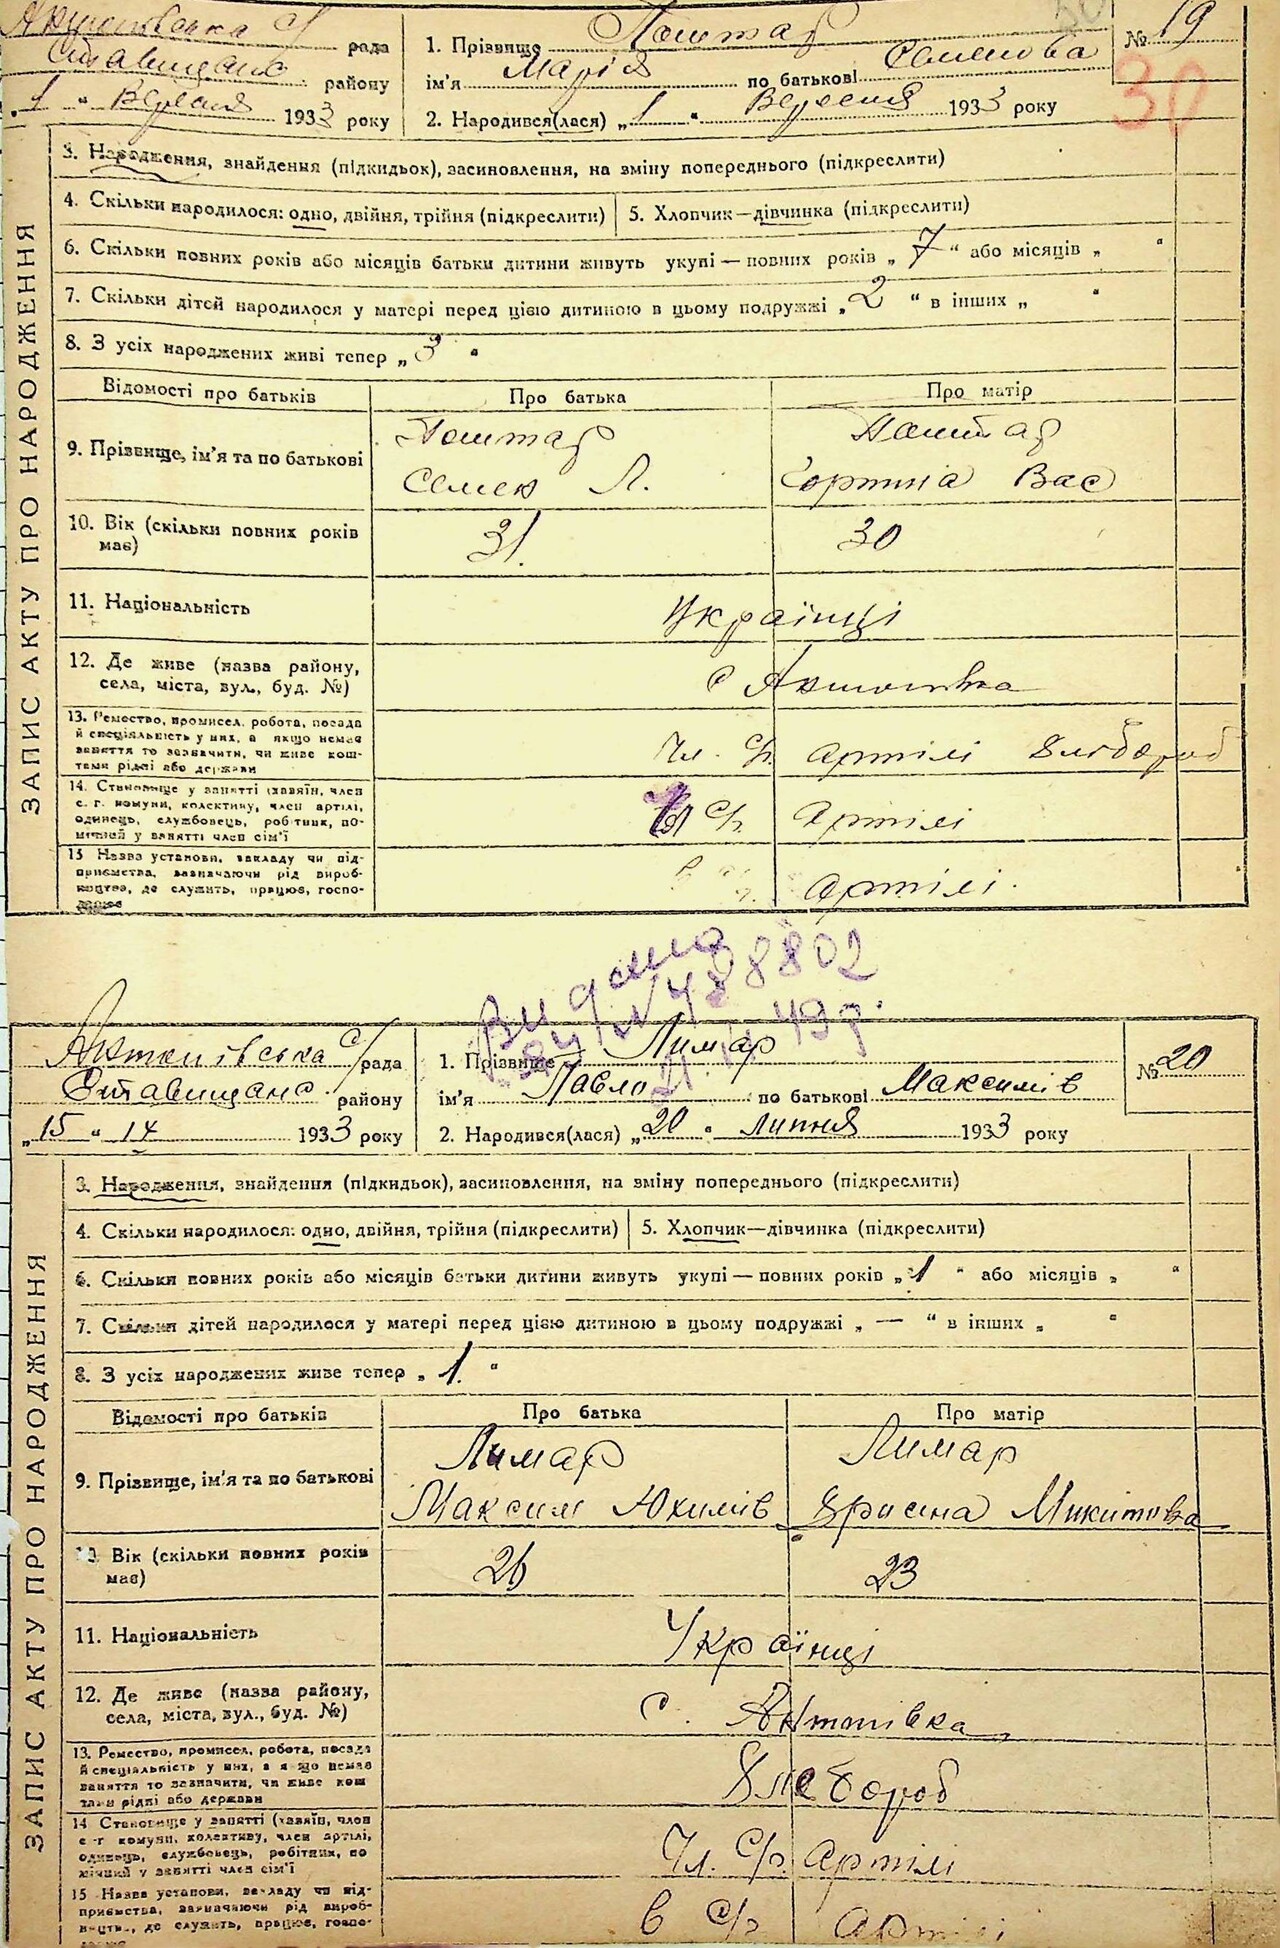 Антонівська с/ рада
Ставищанс. району
„1 “ Вересня 1933 року
1. Прізвище Поштар
ім'я Марія по батькові Семенова
2. Народився(лася) „1 “ Вересня 1933 року
№ 19
30
ЗАПИС АКТУ ПРО НАРОДЖЕННЯ
3. Народження, знайдення (підкидьок), засиновлення, на зміну попереднього (підкреслити)
4. Скільки народилося: одно, двійня, трійня (підкреслити) 5. Хлопчик—дівчинка (підкреслити)
6. Скільки повних років або місяців батьки дитини живуть укупі — повних років „ 7 “ або місяців „ “
7. Скільки дітей народилося у матері перед цією дитиною в цьому подружжі „ 2 “ в інших „ “
8. З усіх народжених живі тепер „ 3 “
Відомості про батьків Про батька Про матір
9. Прізвище, ім'я та по батькові Поштар Поштар
Семен Л. Вас
10. Вік (скільки повних років
має) 31. 30
11. Національність Українці
12. Де живе (назва району,
села, міста, вул., буд. №) с Антонівка
13. Ремество, промисел, робота, посада
й спеціяльність у них, а якщо немає
заняття то зазначити, чи живе кош-
тами рідні або держави Чл. С/г. артілі Хлібороб
14. Становище у занятті (хазяїн, член
с. г. комуни, колективу, член артілі,
одинець, службовець, робітник, по-
мічний у занятті член сім'ї Чл С/г. Артілі
15 Назва установи, закладу чи під-
приємства, зазначаючи рід вироб-
ництва, де служить, працює, госпо-
дарює в с/г. артілі.
Видано
488802
49 р.
Антонівська с/ рада
Ставищанс. району
„ 15 “ 14 1933 року
1. Прізвище Лимар
ім'я Павло по батькові Максимів
2. Народився(лася) „ 20 “ липня 1933 року
№ 20
ЗАПИС АКТУ ПРО НАРОДЖЕННЯ
3. Народження, знайдення (підкидьок), засиновлення, на зміну попереднього (підкреслити)
4. Скільки народилося: одно, двійня, трійня (підкреслити) 5. Хлопчик—дівчинка (підкреслити)
6. Скільки повних років або місяців батьки дитини живуть укупі — повних років „ 1 “ або місяців „ “
7. Скільки дітей народилося у матері перед цією дитиною в цьому подружжі „ — “ в інших „ “
8. З усіх народжених живе тепер „ 1. “
Відомості про батьків Про батька Про матір
9. Прізвище, ім'я та по батькові Лимар Лимар
Максим Юхимів Микитовна
10. Вік (скільки повних років
має) 26 23
11. Національність Українці
12. Де живе (назва району,
села, міста, вул., буд. №) с. Антонівка
13. Ремество, промисел, робота, посада
й спеціяльність у них, а якщо немає
заняття то зазначити, чи живе кош
тами рідні або держави Хлібороб
14 Становище у занятті (хазяїн, член
с-г комуни, колективу, член артілі,
одинець, службовець, робітник, по
мічний у занятті член сім'ї Чл. С/г. артілі
15 Назва установи, закладу чи під-
приємства, зазначаючи рід вироб-
ництв., де служить, працює, госпо-
дарює в с/г артілі